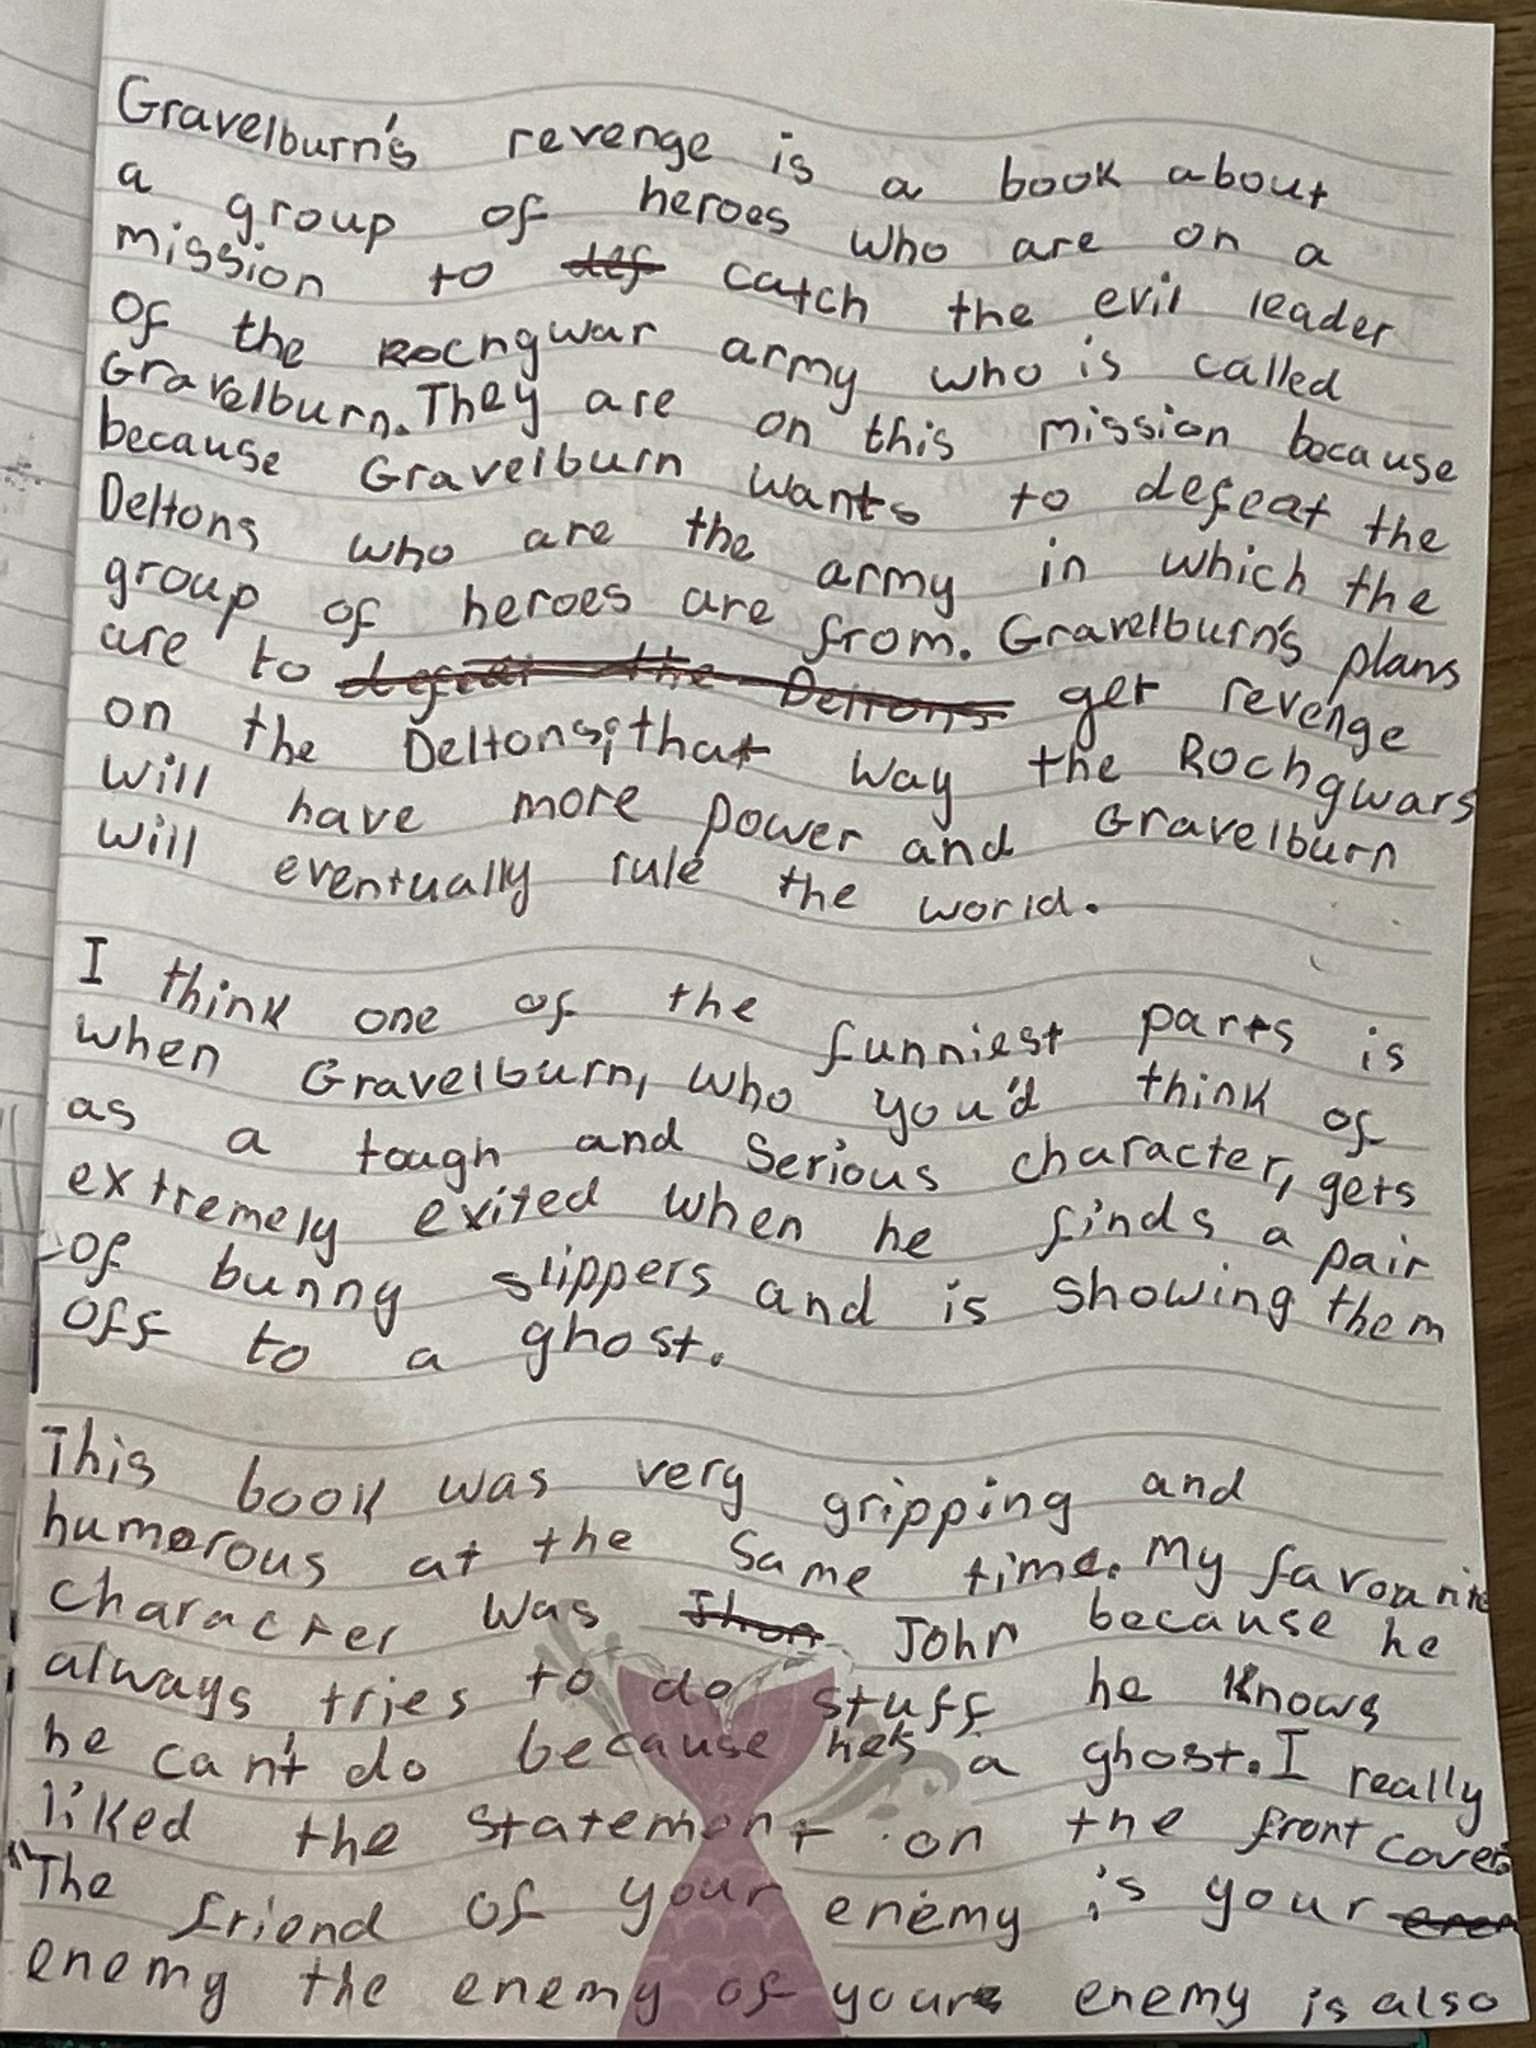 Gravelburn's revenge is a book about
a group of heroes who are on a
mission to def catch the evil leader
of the Rochgwar army who is called
Gravelburn. They are on this mission because
because Gravelburn wants to defeat the
Deltons who are the army in which the
group of heroes are from. Gravelburn's plans
are to defeat the Deltons get revenge
on the Deltons; that way the Rochgwars
will have more power and Gravelburn
will eventually rule the world.
I think one of the funniest parts is
when Gravelburn, who you'd think of
as a tough and serious character, gets
extremely exited when he finds a pair
of bunny slippers and is showing them
off to a ghost.
This book was very gripping and
humorous at the same time. My
character was Jhon John because he
always tries to do stuff he knows
he can't do because he's a ghost. I really
liked the statement on the front cover:
"The friend of your enemy is your enem
enemy the enemy of your enemy is also